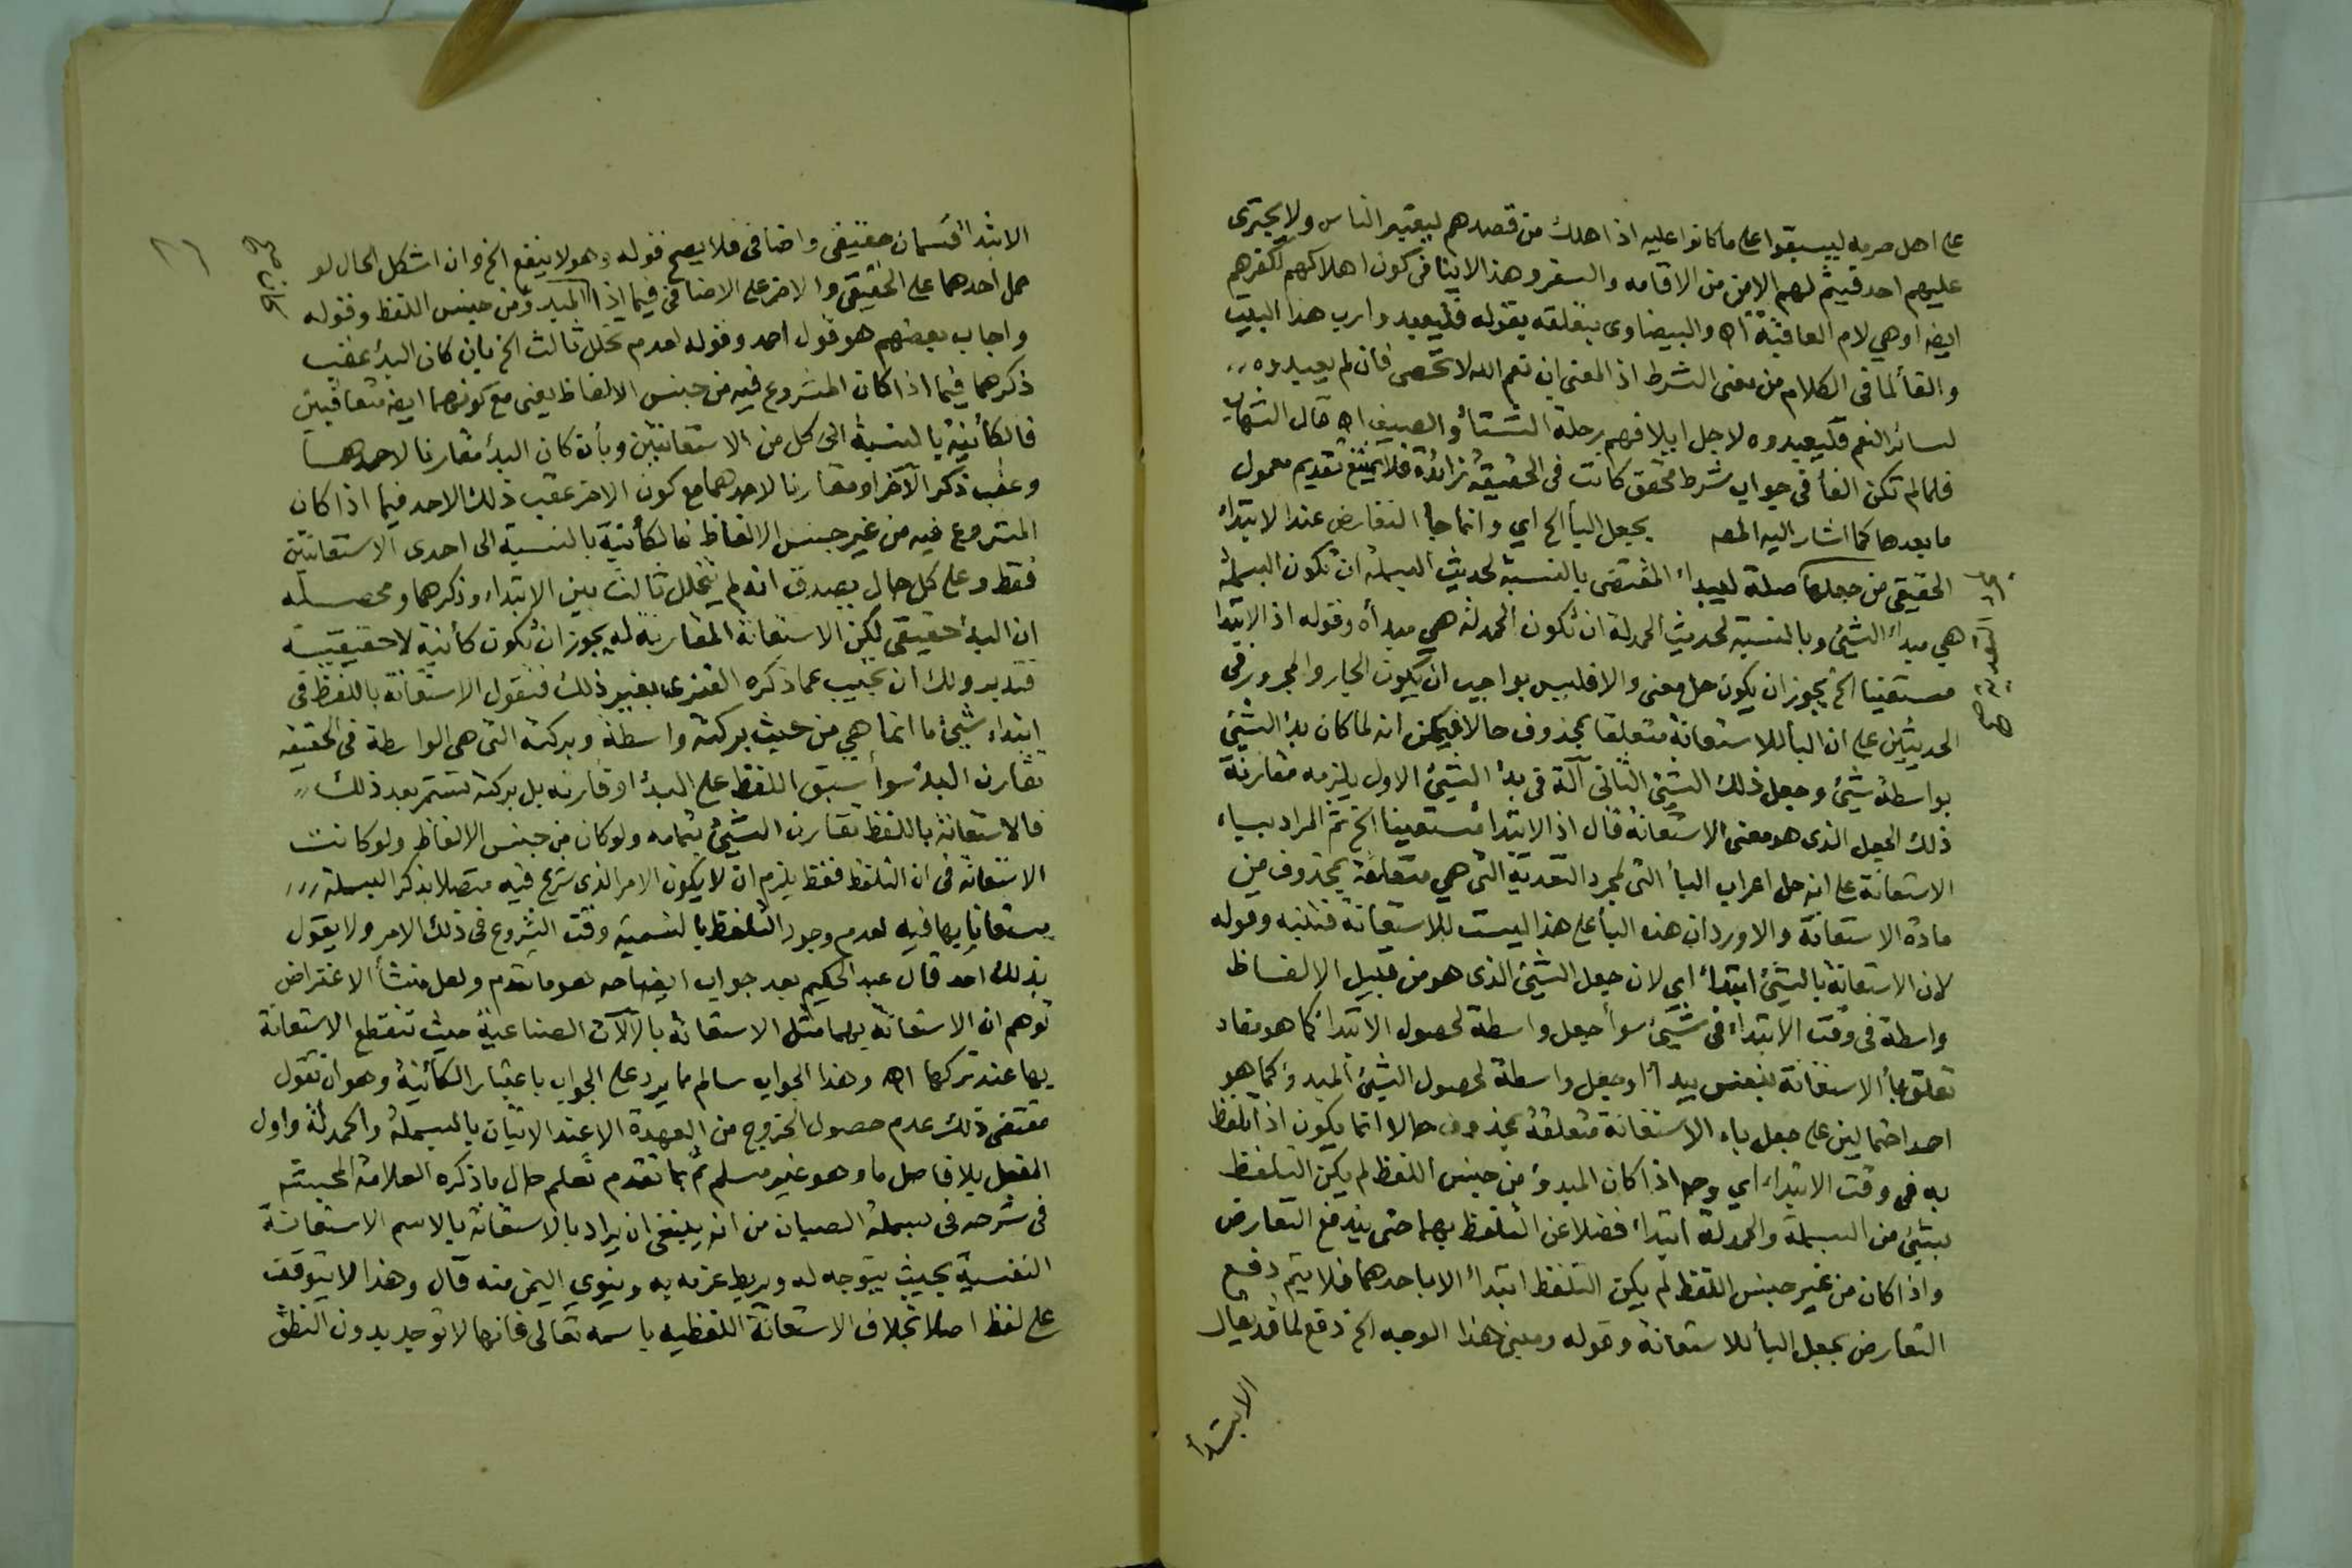 على اهل حرمه ليبسقوا على ما كانوا عليه اذا اهلك من قصدهم ليعتبر الناس ولا يجترى
عليهم احد فيتم لهم الامن من الاقامه والسفر وهذا لا ينافى كون اهلاكهم لكفرهم
ايضا وهي لام العاقبة اه والبيضاوى بتعلقه بقوله فليعبدوا رب هذا البيت
والفاء لما فى الكلام من معنى الشرط اذ المعنى ان نعم الله لا تحصى فان لم يعبدوه
لسائر النعم فليعبدوه لاجل ايلافهم رحلة الشتاء والصيف اه قال الشهاب
فلما لم تكن الفاء فى جواب شرط محقق كانت فى الحقيقة زائدة فلا يمتنع تقديم معمول
ما بعدها كما اشار اليه المصه بجعل الباء الخ اي وانما جاء التعارض عند الابتداء
الحقيقي من جعلها صلة ليبدأ المقتضى بالنسبة لحديث البسملة ان تكون البسملة
هي مبدأ الشئ وبالنسبة لحديث الحمدلة ان تكون الحمدلة هي مبدأه وقوله اذ الابتدا
مستعينا الخ يجوز ان يكون حل معنى والا فليس بواجب ان يكون الجار والمجرور فى
الحديثين على ان الباء للاستعانة متعلقا بمحذوف حالا فيمكن انه لما كان بدء الشئ
بواسطة شئ وجعل ذلك الشئ الثانى آلة فى بدء الشئ الاول يلزمه مقارنة
ذلك الجعل الذى هو معنى الاستعانة قال اذ الابتداء مستعينا الخ ثم المراد بباء
الاستعانة على انه حل اعراب الباء التى لمجرد التعدية التى هي متعلقة بمحذوف من
مادة الاستعانة والا ورد ان هذه الباء على هذا ليست للاستعانة فتنبه وقوله
لان الاستعانة بالشئ ابتداء اي لان جعل الشئ الذى هو من قبيل الالفاظ
واسطة فى وقت الابتداء فى شئ سوأ جعل واسطة لحصول الابتدا كما هو مفاد
تعلق باء الاستعانة بنفس يبدأ او جعل واسطة لحصول الشئ المبدؤ كما هو
احد احتمالين على جعل باء الاستعانة متعلقة بمحذوف حالا انما يكون اذا تلفظ
به فى وقت الابتداء اي وح اذا كان المبدؤ من جنس اللفظ لم يكن التلفظ
بشئ من البسملة والحمدلة ابتداء فضلا عن التلفظ بهما حتى يندفع التعارض
واذا كان من غير جنس اللفظ لم يكن التلفظ ابتداء الا باحدهما فلا يتم دفع
التعارض بجعل الباء للاستعانة وقوله ومبنى هذا الوجه الخ دفع لما قد يقال
الابتدأ
٢٦
الابتدا قسمان حقيقى واضافى فلا يصح قوله وهو لا ينفع الخ وان اشكل الحال لو
حمل احدهما على الحقيقى والاخر على الاضافى فيما اذا المبدؤ من جنس اللفظ وقوله
واجاب بعضهم هو قول احمد وقوله لعدم تخلل ثالث الخ بان كان البدء عقب
ذكرهما فيما اذا كان المشروع فيه من جنس الالفاظ يعنى مع كونهما ايضا متعاقبين
فالكأنية بالنسبة الى كل من الاستعانتين وبأن كان البدء مقارنا لاحدهما
وعقب ذكر الآخر او مقارنا لاحدهما مع كون الاخر عقب ذلك الاحد فيما اذا كان
المشروع فيه من غير جنس الالفاظ فالكأنية بالنسبة الى احدى الاستعانتين
فقط وعلى كل حال يصدق انه لم يتخلل ثالث بين الابتداء وذكرهما ومحصله
ان البدء حقيقى لكن الاستعانة المقارنة له يجوز ان تكون كأنية لا حقيقية
فتدبر ولك ان تجيب عما ذكره الفنرى بغير ذلك فنقول الاستعانة باللفظ فى
ابتداء شئ ما انما هي من حيث بركته واسطة وبركته التى هى الواسطة فى الحقيقه
تقارن البدء سوأ سبق اللفظ على البدء او قارنه بل بركته تستمر بعد ذلك
فالاستعانة باللفظ تقارن الشئ بتمامه ولو كان من جنس الالفاظ ولو كانت
الاستعانه فى ان التلفظ فقط يلزم ان لا يكون الامر الذى شرع فيه متصلا بذكر البسملة
مستعانا بها فيه لعدم وجود التلفظ بالتسمية وقت الشروع فى ذلك الامر ولا يقول
بذلك احد قال عبد الحكيم بعد جواب ايضاحه هو ما تقدم ولعل منشأ الاعتراض
توهم ان الاستعانة بهما مثل الاستعانة بالآلات الصناعية حيث تنقطع الاستعانة
بها عند تركها اه وهذا الجواب سالم مما يرد على الجواب باعتبار الكأنية وهو ان تقول
مقتضى ذلك عدم حصول الخروج من العهدة الا عند الاتيان بالبسملة والحمدلة واول
الفعل بلا فاصل ما وهو غير مسلم ثم بما تقدم تعلم حال ما ذكره العلامة المحشه
فى شرحه فى بسملة الصبان من انه ينبغى ان يراد بالاستعانة بالاسم الاستعانة
النفسية بحيث يتوجه له ويربط عزمه به وينوي اليمن منه قال وهذا لا يتوقف
على لفظ اصلا بخلاف الاستعانة اللفظيه باسمه تعالى فانها لا توجد بدون النطق